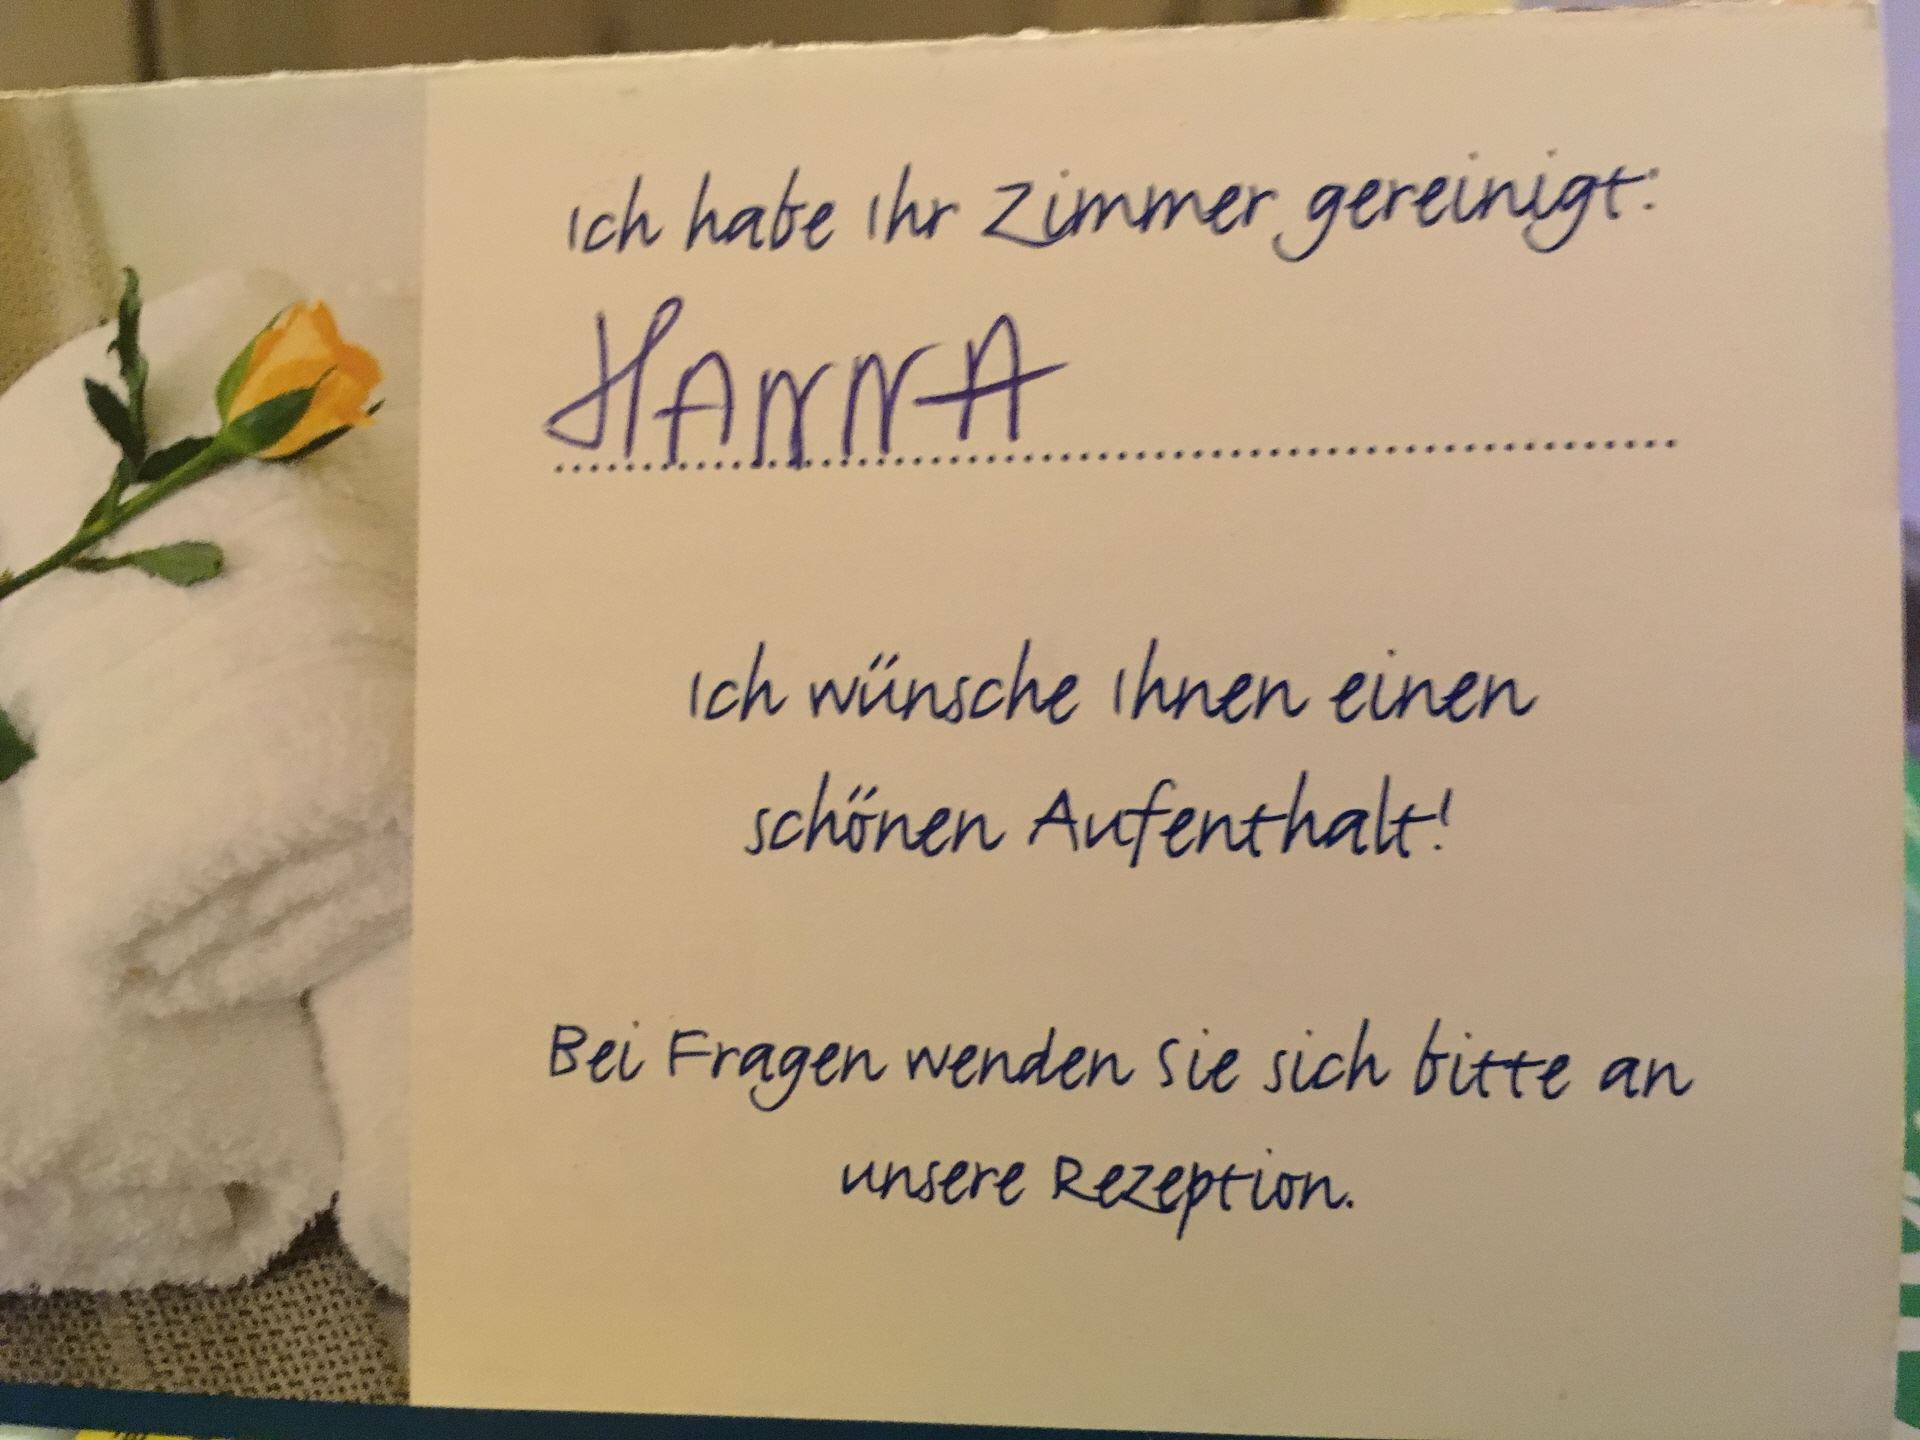 Ich habe Ihr Zimmer gereinigt:
HANNA
Ich wünsche Ihnen einen
schönen Aufenthalt!
Bei Fragen wenden Sie sich bitte an
unsere Rezeption.